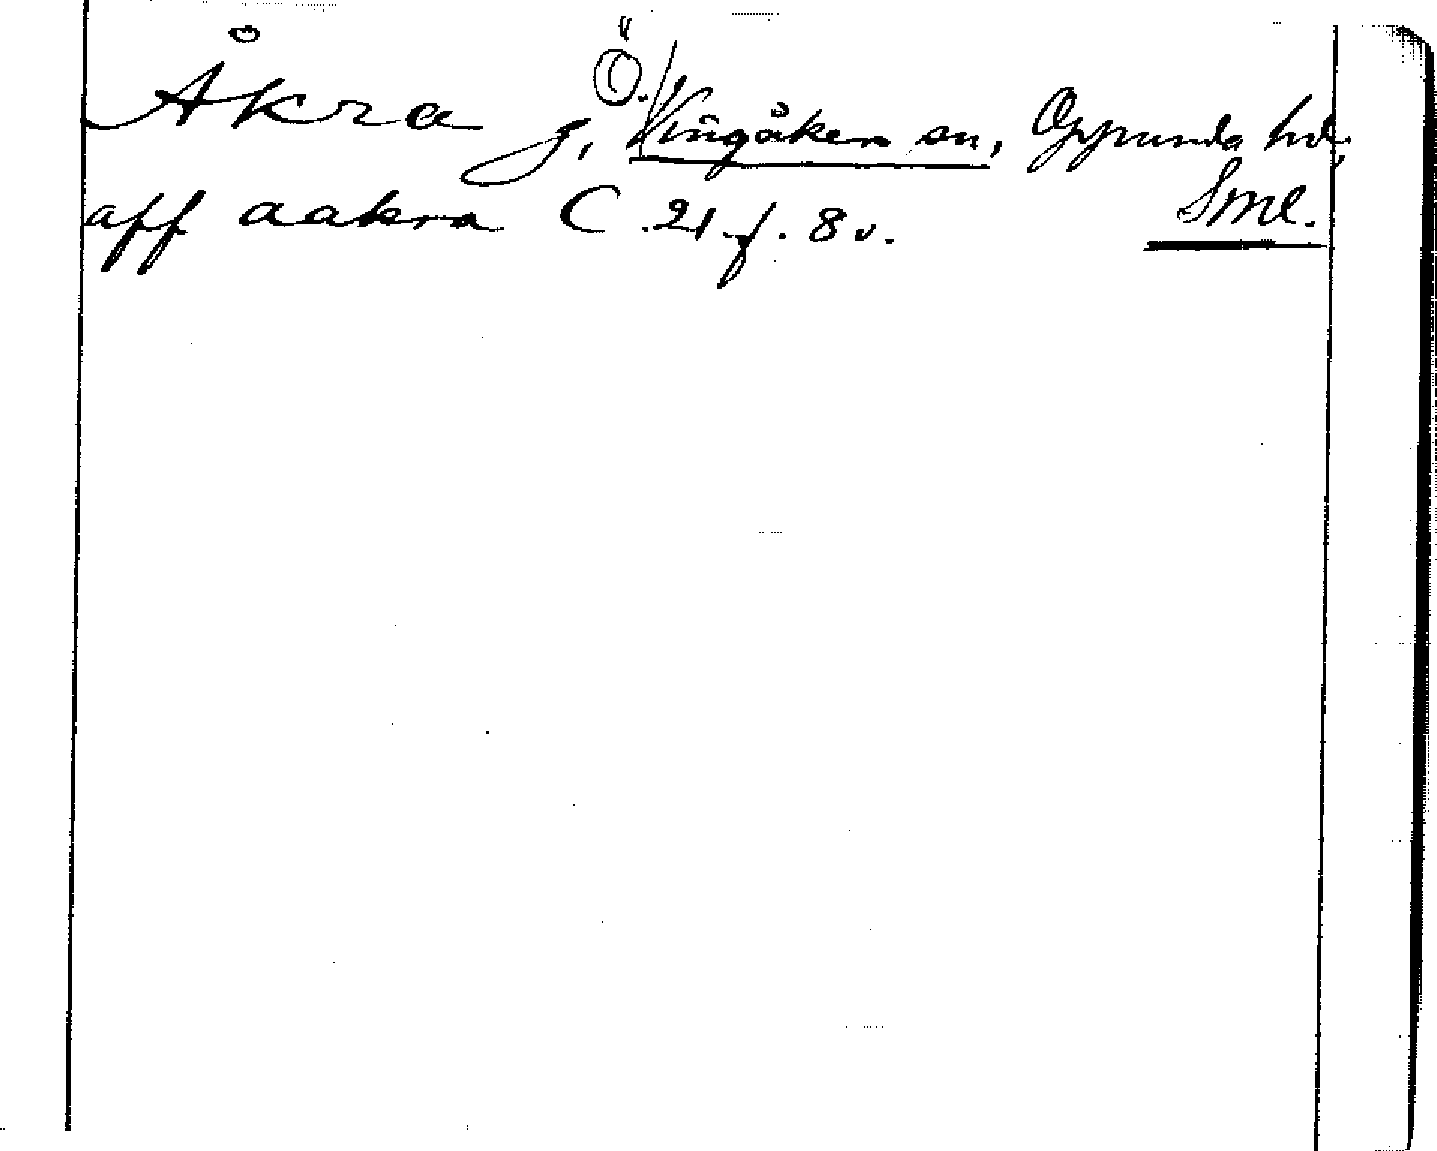 Åkra g, Ö. Vingåker sn, Oppunda hd,
Sml.
aff aakra C 21 f. 8 v.